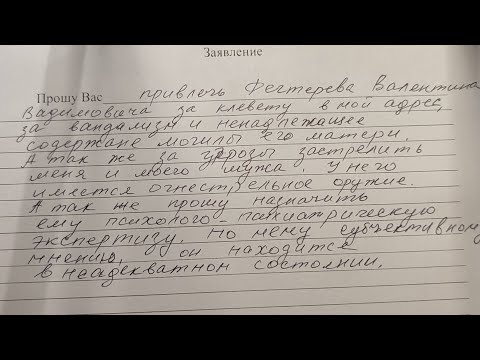 Заявление
Прошу Вас привлечь Фегтерева Валентина
Вадимовича за клевету в мой адрес,
за вандализм и ненадлежащее
содержане могилы его матери.
А так же за угрозы застрелить
меня и моего мужа. У него
имеется огнестрельное оружие.
А так же прошу назначить
ему психолого-психиатрическую
экспертизу, по мему субъективному
мнению, он находится
в неадекватном состоянии.